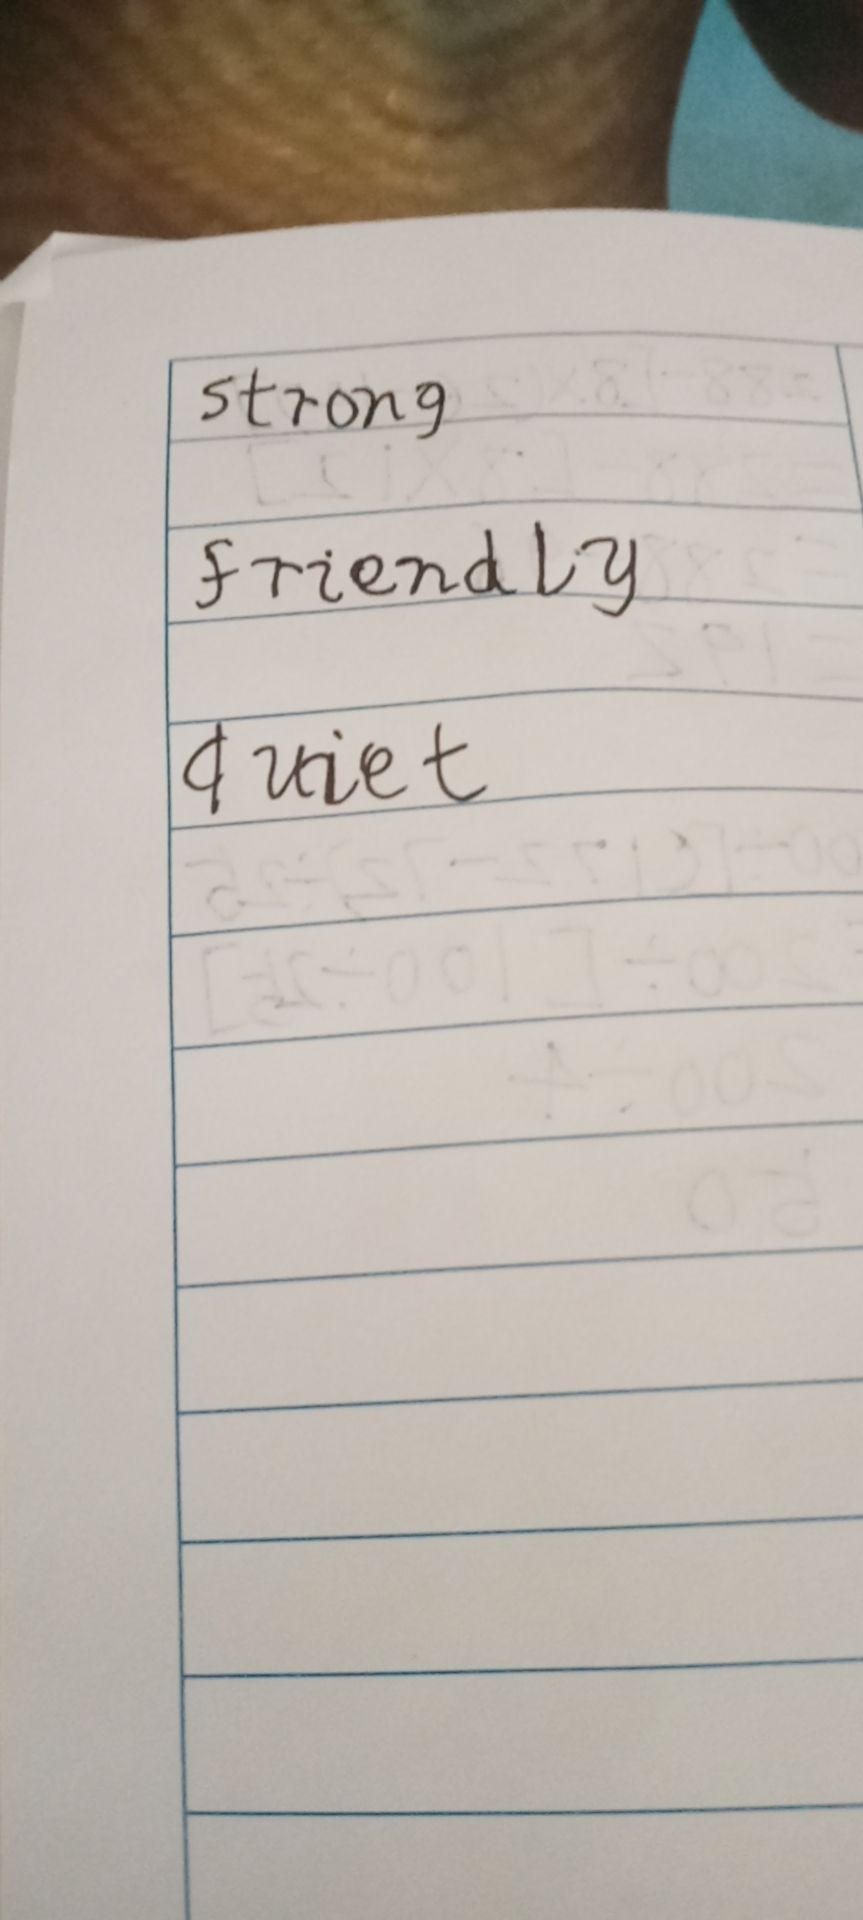 strong
friendly
quiet